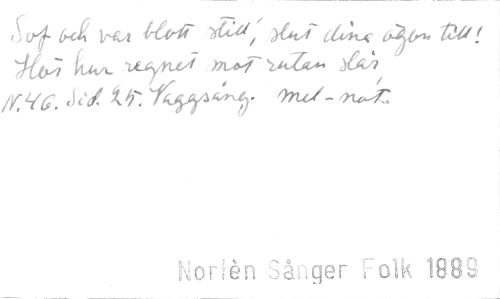 Sof och var blott still, slut dina ögon till!
Hör hur regnet mot rutan slår,
N.46. Sid. 25. Vaggsång. mel-not.
Norlèn Sånger Folk 1889